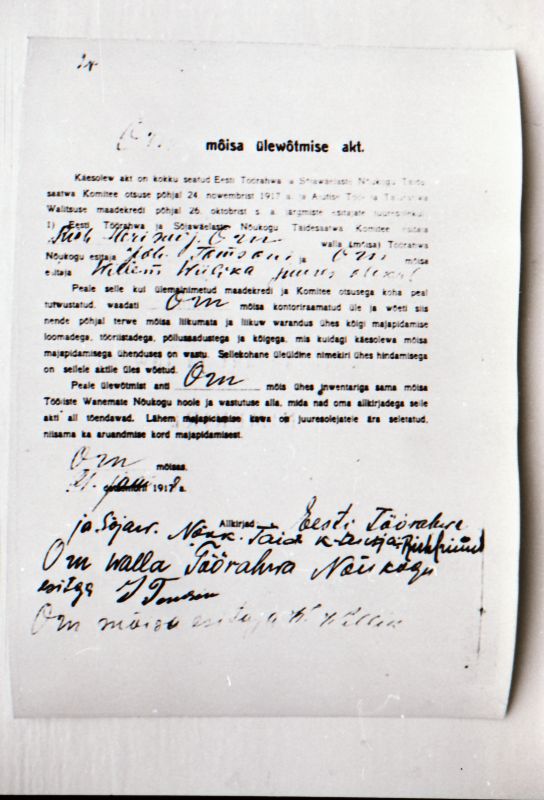 Orn mõisa ülewõtmise akt.
Käesolew akt on kokku seatud Eesti Töörahwa ja Sõjawäelaste Nõukogu Täide-
saatwa Komitee otsuse põhjal 24. nowembrist 1917 a. ja
Walitsuse maadekredi põhjal 26. oktobrist s. a. järgmiste esitajate juuresolekul:
1) Eesti Töörahwa ja Sõjawäelaste Nõukogu Täidesaatwa Komitee esitaja
Orn walla (mõisa) Töörahwa
Nõukogu esitaja Joh. ja Orn mõisa
esitaja Willem juures olekul
Peale selle kui ülemalnimetud maadekredi ja Komitee otsusega koha peal
tutwustatud, waadati Orn mõisa kontoriraamatud üle ja wõeti siis
nende põhjal terwe mõisa liikumata ja liikuw warandus ühes kõigi majapidamise
loomadega, tööriistadega, põllusaadustega ja kõigega, mis kuidagi käesolewa mõisa
majapidamisega ühenduses on wastu. Sellekohane üleüldine nimekiri ühes hindamisega
on sellele aktile üles wõetud.
Peale ülewõtmist anti Orn mõis ühes inwentariga sama mõisa
Tööliste Wanemate Nõukogu hoole ja wastutuse alla, mida nad oma allkirjadega selle
akti all tõendawad. Lähem majapidamise kawa on juuresolejatele ära seletatud,
niisama ka aruandmise kord majapidamisest.
Orn mõisas,
21. jaan 1918 a.
Allkirjad Eesti Töörahwa
ja Sõjaw. Nõuk. Täid
Orn walla Töörahwa Nõukogu
esitaja
Orn mõisa esitaja W.